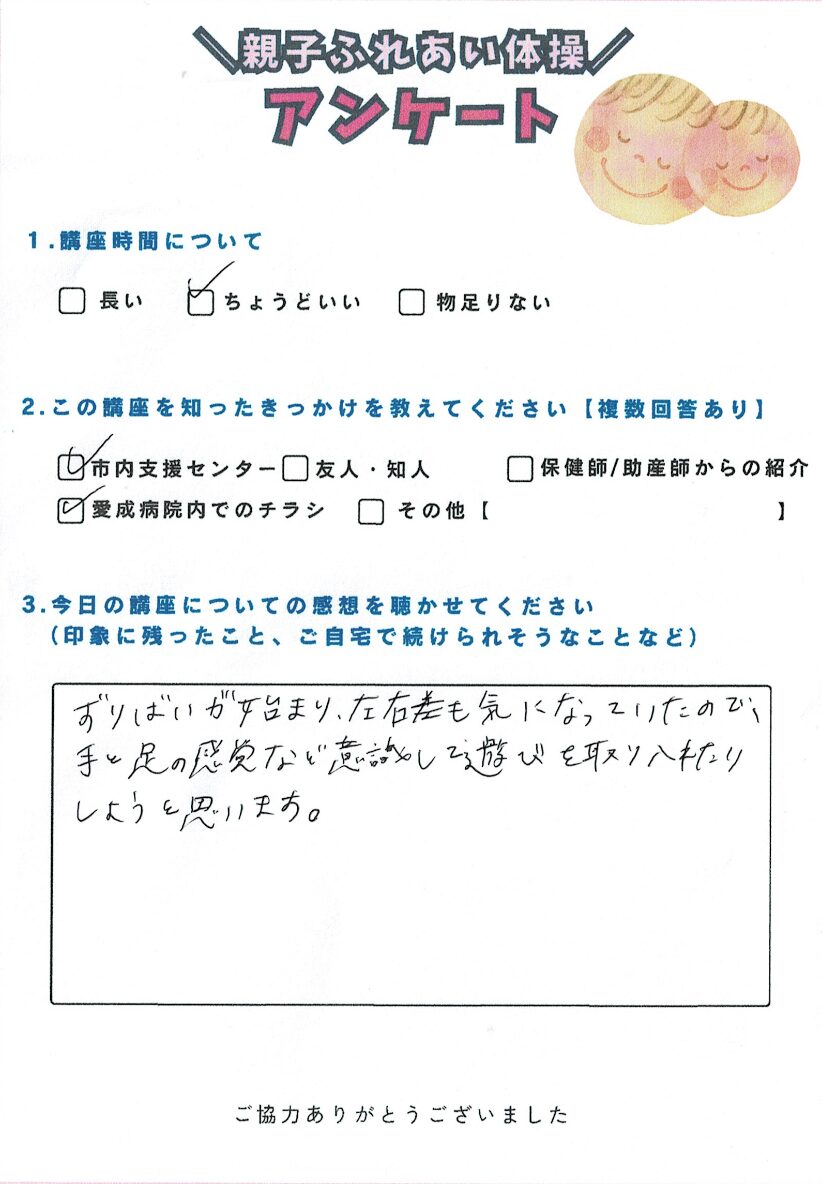 親子ふれあい体操
アンケート
1.講座時間について
□ 長い ☑ ちょうどいい □ 物足りない
2.この講座を知ったきっかけを教えてください【複数回答あり】
☑ 市内支援センター □ 友人・知人 □ 保健師/助産師からの紹介
☑ 愛成病院内でのチラシ □ その他【 】
3.今日の講座についての感想を聴かせてください
(印象に残ったこと、ご自宅で続けられそうなことなど)
ずりばいが始まり、左右差も気になっていたので、
手と足の感覚など意識して遊びを取り入れたり
しようと思います。
ご協力ありがとうございました